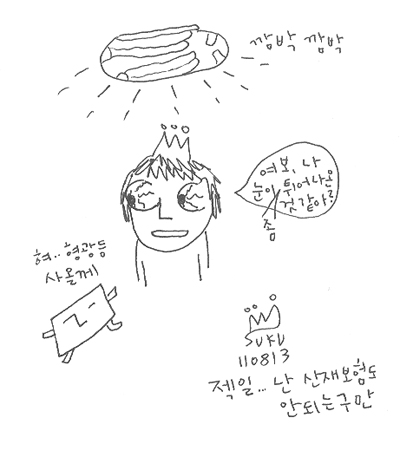 깜박 깜박
여보, 나
눈이 튀어나온
것 같아?
좀
혀.. 형광등
사올께
SUKU
110813
젝일... 난 산재보험도
안되는구만